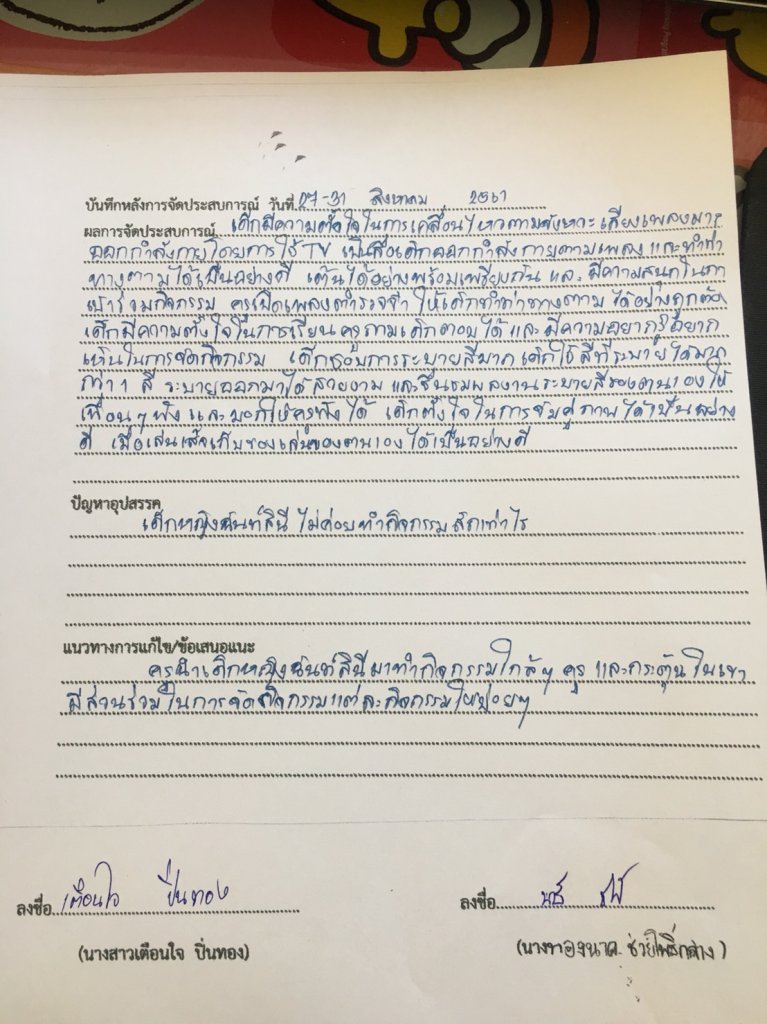 บันทึกหลังการจัดประสบการณ์ วันที่ 27-31 สิงหาคม 2561
ผลการจัดประสบการณ์ เด็กมีความตั้งใจในการเคลื่อนไหวตามจังหวะเสียงเพลงมาก
ออกกำลังกายโดยการใช้ TV เป็นสื่อเด็กออกกำลังกายตามเพลง และทำท่า
ทางตามได้เป็นอย่างดี เต้นได้อย่างพร้อมเพรียงกัน และ มีความสนุกในกา
เข้าร่วมกิจกรรม ครูเปิดเพลงตำรวจจ๋า ให้เด็กทำท่าทางตาม ได้อย่างถูกต้อ
เด็กมีความตั้งใจในการเรียน ครูถามเด็กตอบได้ และ มีความอยากรู้อยาก
เห็นในการจัดกิจกรรม เด็กชอบการระบายสีมาก เด็กใช้สีที่ระบายได้มาก
กว่า 1 สี ระบายออกมาได้สวยงาม และชื่นชมผลงานระบายสีของตนเองให้
เพื่อนๆฟัง และบอกให้ครูฟังได้ เด็กตั้งใจในการจับคู่ภาพได้เป็นอย่าง
ดี เมื่อเล่นเสร็จเก็บของเล่นของตนเองได้เป็นอย่างดี
ปัญหาอุปสรรค
เด็กหญิงนันท์สินี ไม่ค่อยทำกิจกรรมสักเท่าไร
แนวทางการแก้ไข/ข้อเสนอแนะ
ครูนำเด็กหญิงนันท์สินีมาทำกิจกรรมใกล้ๆ ครู และกระตุ้น ในเขา
มีส่วนร่วมในการจัดกิจกรรมแต่ละกิจกรรมให้บ่อยๆ
ลงชื่อ เตือนใจ ปิ่นทอง
ลงชื่อ
(นางสาวเตือนใจ ปิ่นทอง)
(นางทองนาค ช่วยโพธิ์กลาง)